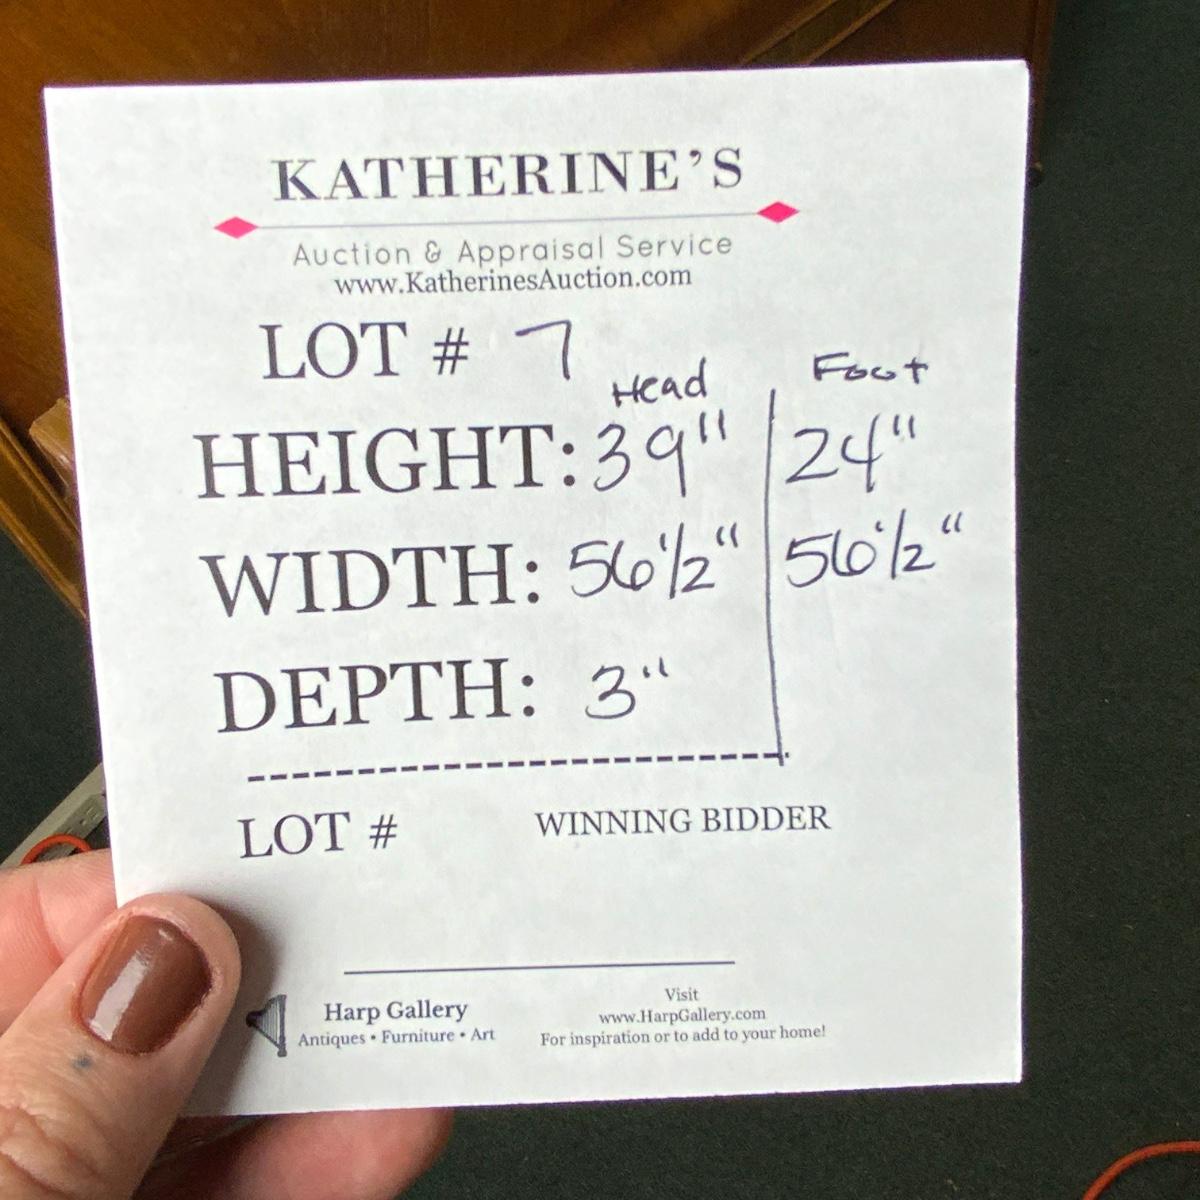 KATHERINE'S
Auction & Appraisal Service
www.KatherinesAuction.com
LOT # 7
Head Foot
HEIGHT: 39" 24"
WIDTH: 56 1/2" 56 1/2"
DEPTH: 3"
LOT # WINNING BIDDER
Harp Gallery
Antiques • Furniture • Art
Visit
www.HarpGallery.com
For inspiration or to add to your home!